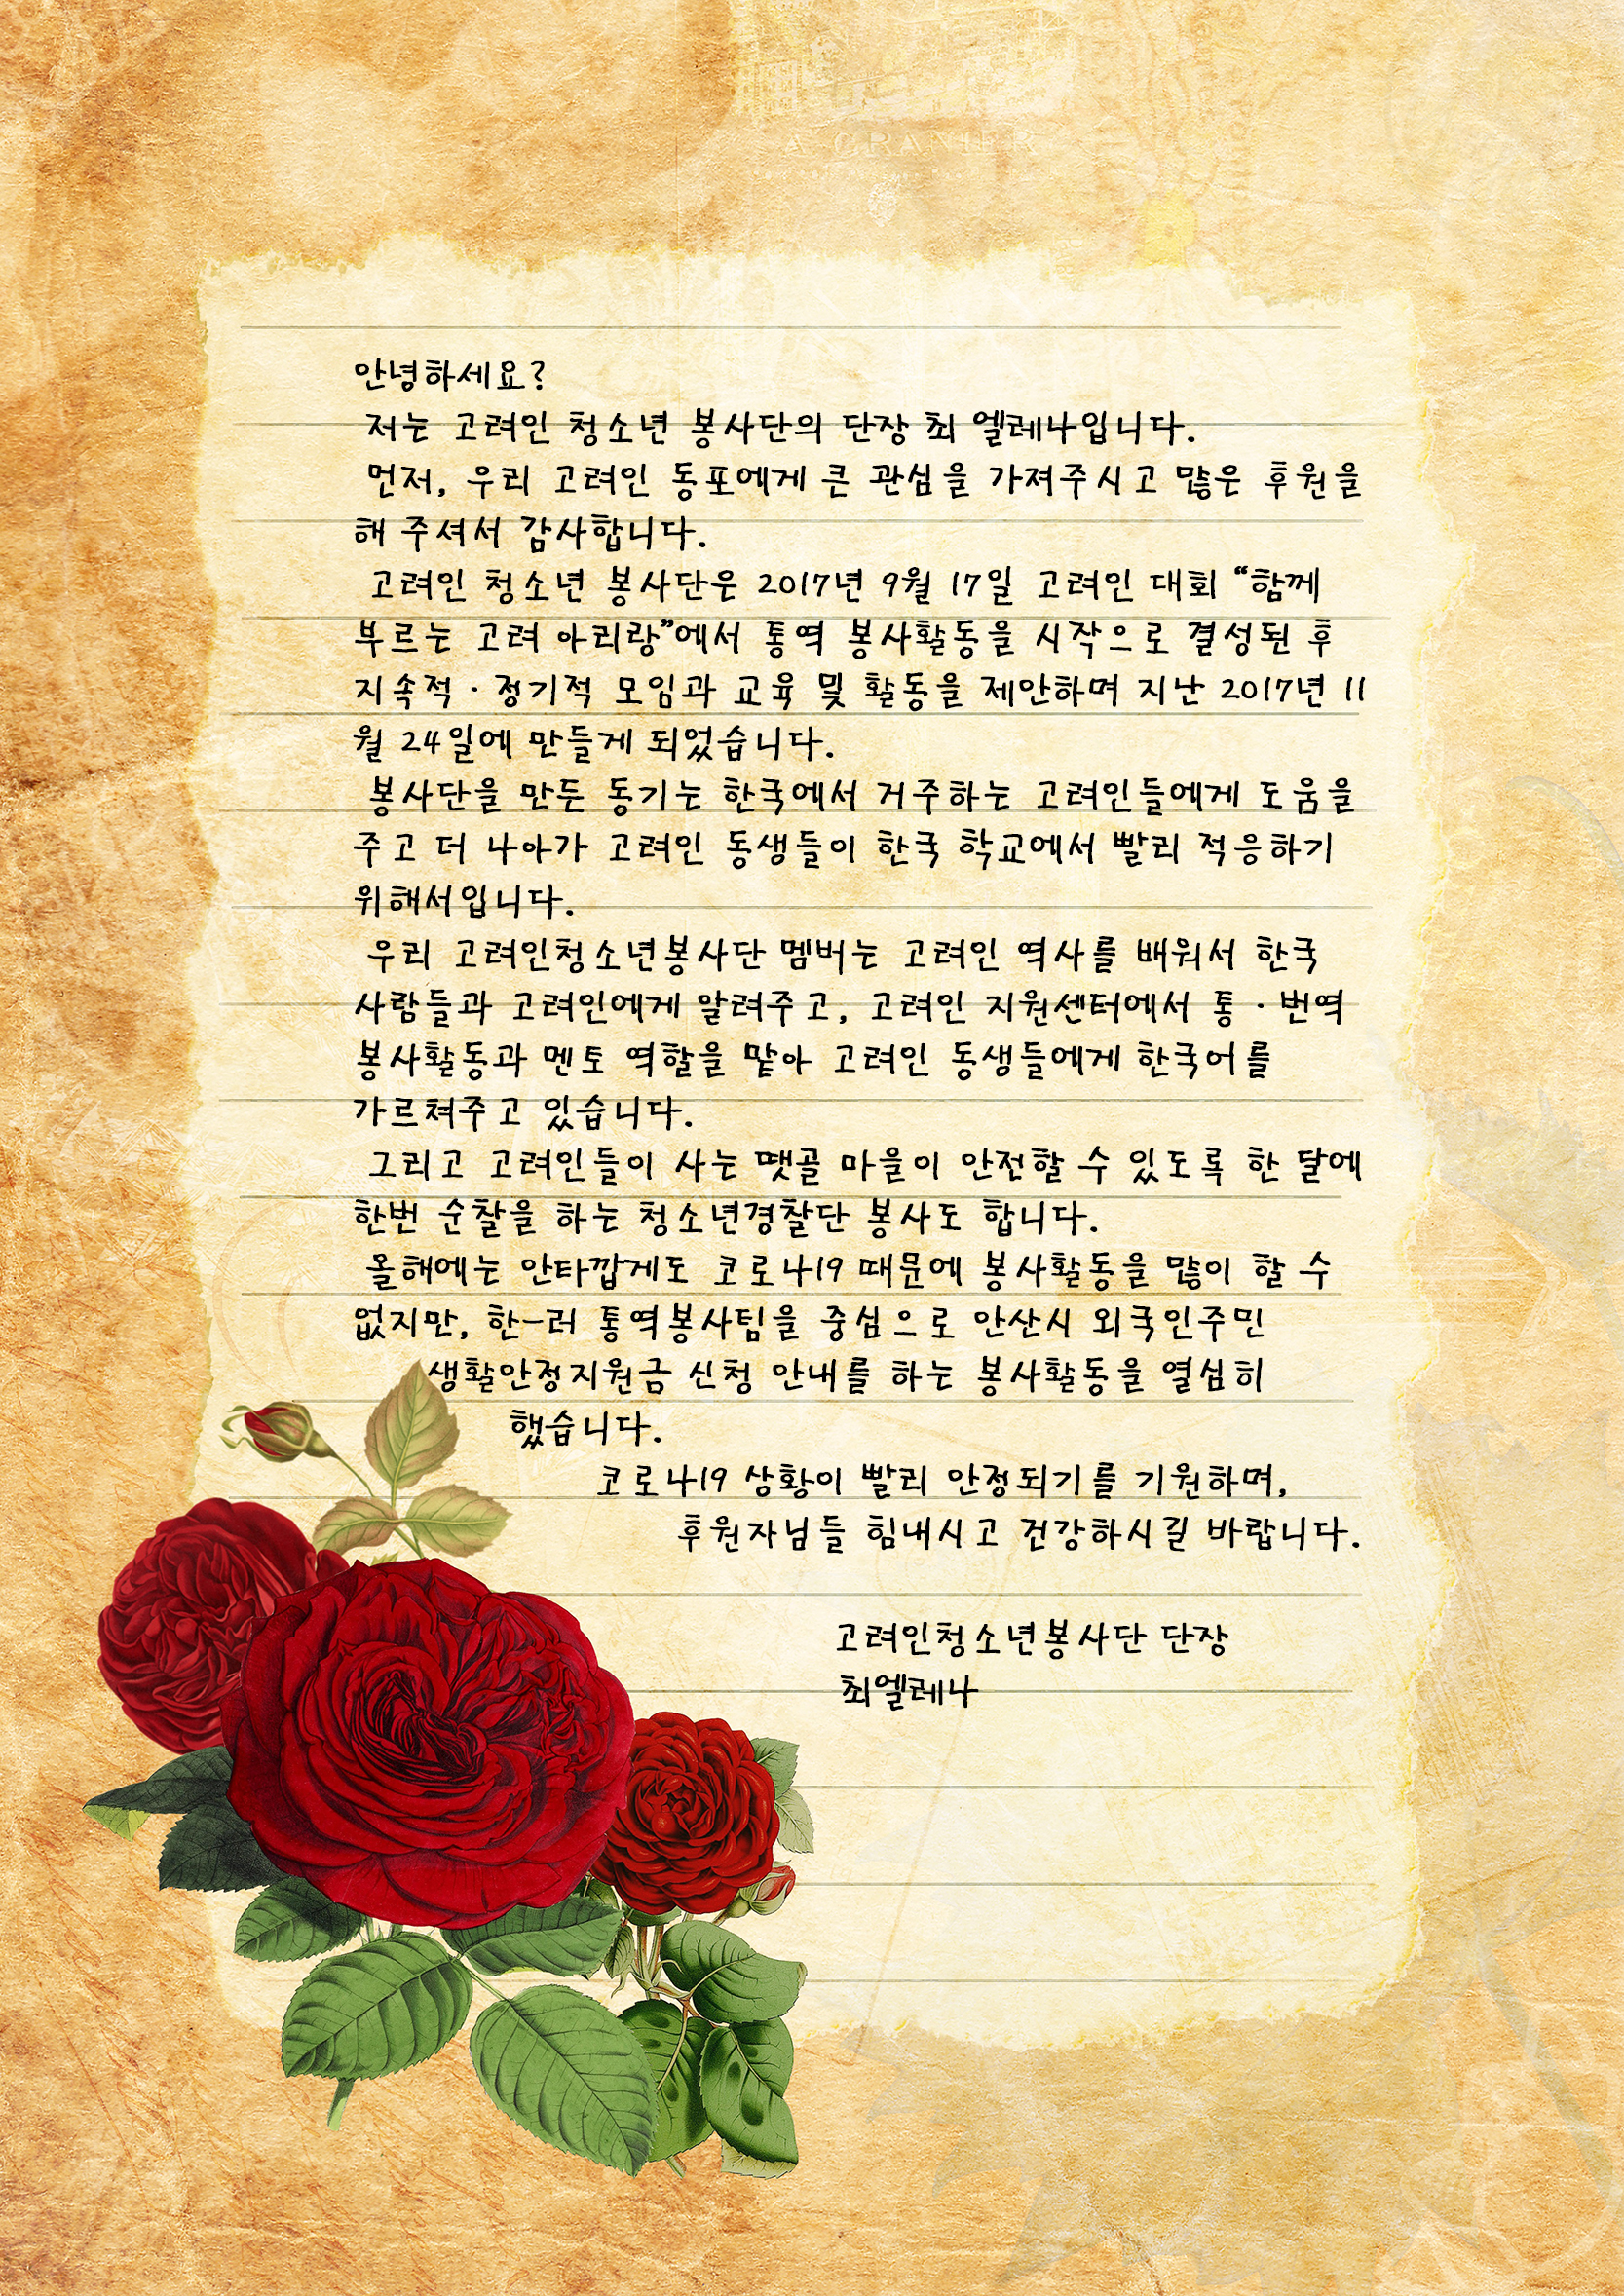 A GRANIER
안녕하세요?
저는 고려인 청소년 봉사단의 단장 최 엘레나입니다.
먼저, 우리 고려인 동포에게 큰 관심을 가져주시고 많은 후원을
해 주셔서 감사합니다.
고려인 청소년 봉사단은 2017년 9월 17일 고려인 대회 “함께
부르는 고려 아리랑”에서 통역 봉사활동을 시작으로 결성된 후
지속적·정기적 모임과 교육 및 활동을 제안하며 지난 2017년 11
월 24일에 만들게 되었습니다.
봉사단을 만든 동기는 한국에서 거주하는 고려인들에게 도움을
주고 더 나아가 고려인 동생들이 한국 학교에서 빨리 적응하기
위해서입니다.
우리 고려인청소년봉사단 멤버는 고려인 역사를 배워서 한국
사람들과 고려인에게 알려주고, 고려인 지원센터에서 통·번역
봉사활동과 멘토 역할을 맡아 고려인 동생들에게 한국어를
가르쳐주고 있습니다.
그리고 고려인들이 사는 땟골 마을이 안전할 수 있도록 한 달에
한번 순찰을 하는 청소년경찰단 봉사도 합니다.
올해에는 안타깝게도 코로나19 때문에 봉사활동을 많이 할 수
없지만, 한-러 통역봉사팀을 중심으로 안산시 외국인주민
생활안정지원금 신청 안내를 하는 봉사활동을 열심히
했습니다.
코로나19 상황이 빨리 안정되기를 기원하며,
후원자님들 힘내시고 건강하시길 바랍니다.
고려인청소년봉사단 단장
최엘레나